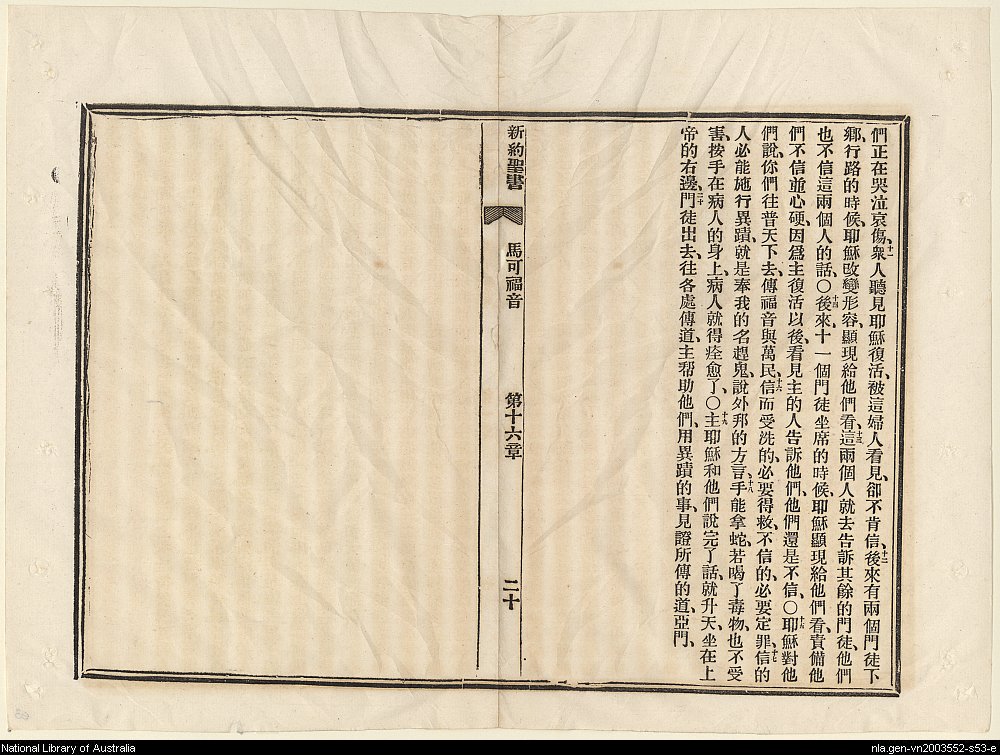 們正在哭泣哀傷、十一衆人聽見耶穌復活、被這婦人看見、卻不肯信、十二後來有兩個門徒下
鄉、行路的時候、耶穌改變形容、顯現給他們看、十三這兩個人就去告訴其餘的門徒、他們
也不信這兩個人的話、〇十四後來、十一個門徒坐席的時候、耶穌顯現給他們看、責備他
們不信並心硬、因爲主復活以後、看見主的人告訴他們、他們還是不信、〇十五耶穌對他
們說、你們往普天下去、傳福音與萬民、十六信而受洗的、必要得救、不信的、必要定罪、十七信的
人必能施行異蹟、就是奉我的名趕鬼、說外邦的方言、十八手能拿蛇、若喝了毒物、也不受
害、按手在病人的身上、病人就得痊愈了、〇十九主耶穌和他們說完了話、就升天、坐在上
帝的右邊、二十門徒出去、往各處傳道、主帮助他們、用異蹟的事、見證所傳的道、亞門、
新約聖書 馬可福音 第十六章 二十
National Library of Australia
nla.gen-vn2003552-s53-e